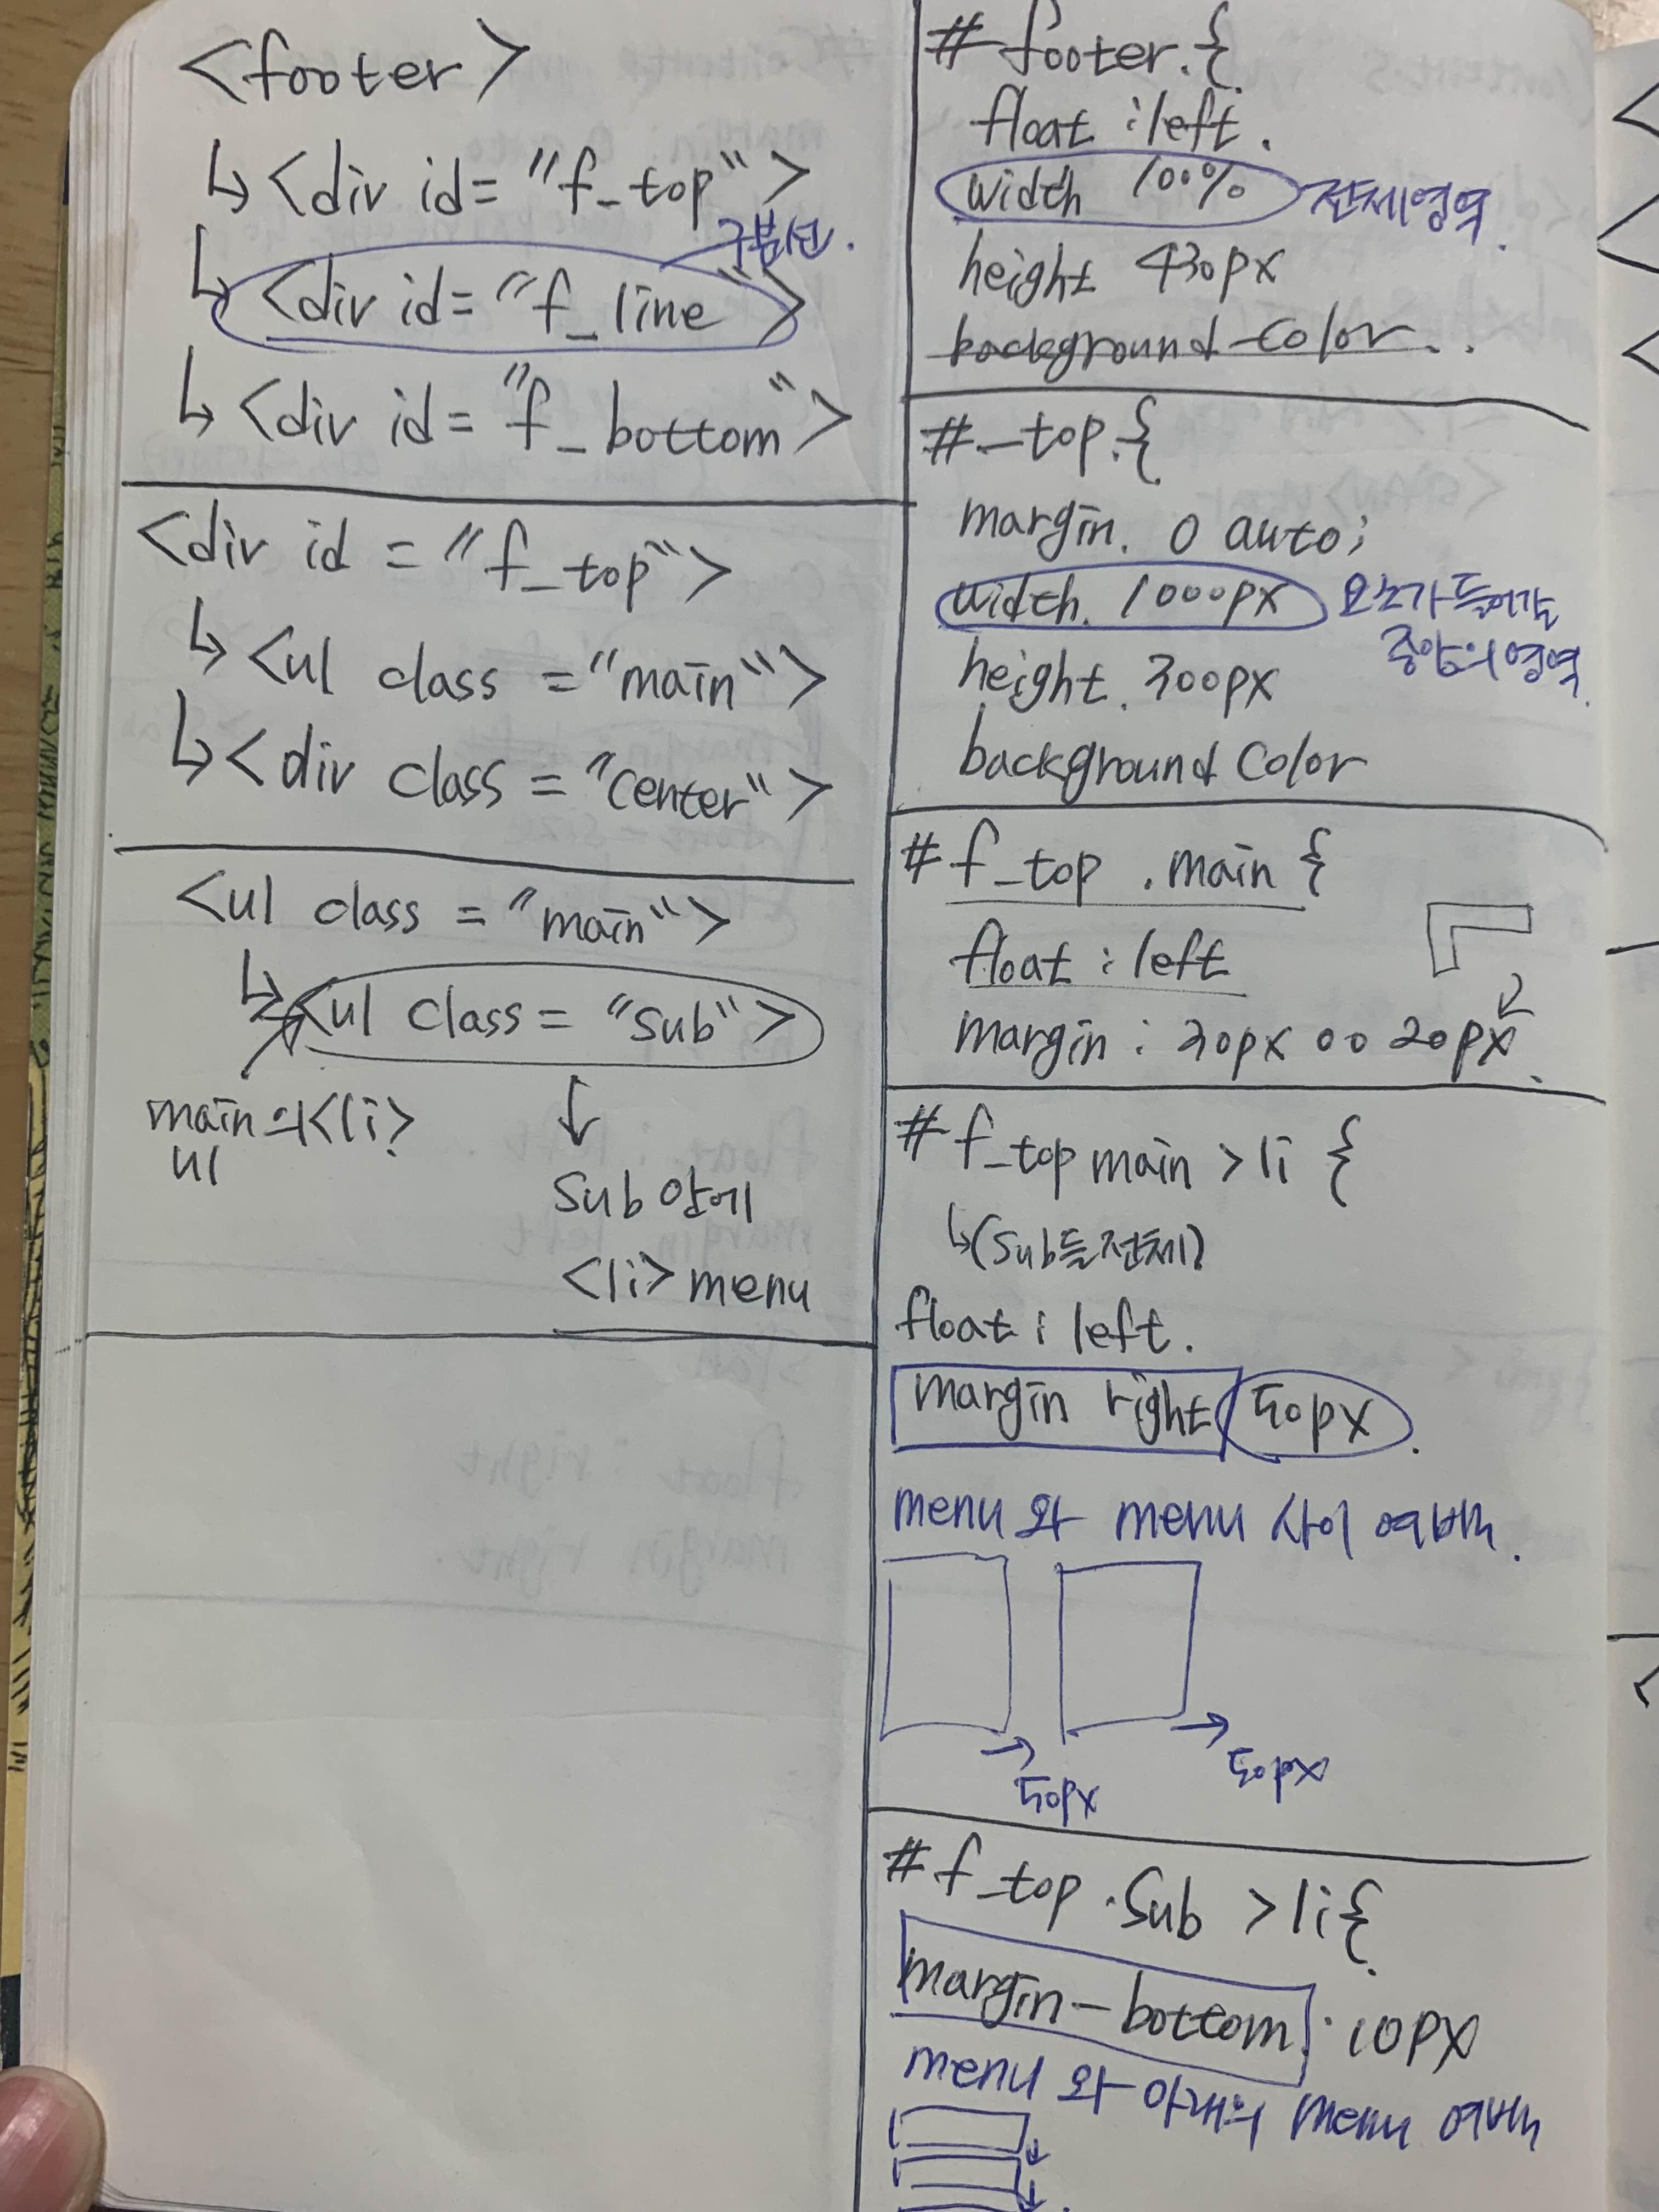 <footer>
↳<div id="f_top">
구분선.
↳<div id="f_line">
↳<div id="f_bottom">
<div id="f_top">
↳<ul class="main">
↳<div class="center">
<ul class="main">
↳<ul class="sub">
main의<li>
ul
↓
sub 안에
<li> menu
# footer.{
float : left.
width 100% 전체영역.
height 430px
background-color..
#_top.{
margin. 0 auto;
width. 1000px 요소가 들어갈
중앙의 영역.
height. 300px
background color
#f_top .main {
float : left
margin : 30px 0 0 20px.
#f_top main > li {
↳(sub들 전체)
float : left.
margin right 50px.
menu 와 menu 사이 여백.
→ 50px
→ 50px
#f_top .sub > li{
margin-bottom: 10px
menu 와 아래의 menu 여백